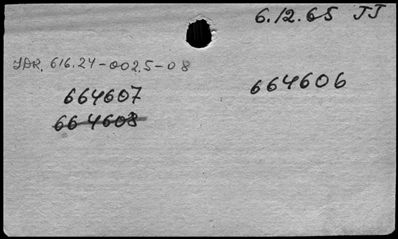 6.12.65 JJ
JDR. 616.24-002.5-08
664607 664606
664608